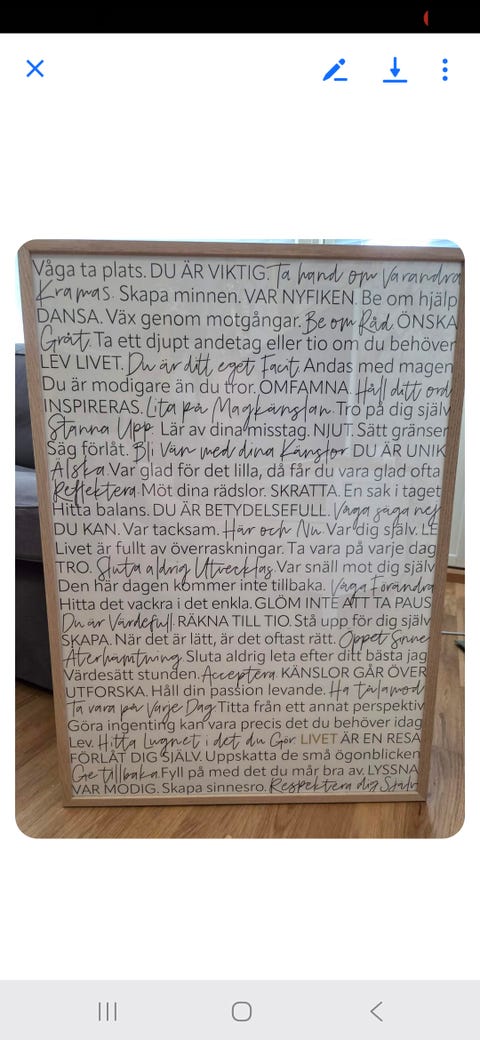 Våga ta plats. DU ÄR VIKTIG. Ta hand om Varandra
Kramas. Skapa minnen. VAR NYFIKEN. Be om hjälp
DANSA. Väx genom motgångar. Be om Råd. ÖNSKA
Gråt. Ta ett djupt andetag eller tio om du behöver
LEV LIVET. Du är ditt eget Facit. Andas med magen
Du är modigare än du tror. OMFAMNA. Håll ditt ord
INSPIRERAS. Lita på Magkänslan. Tro på dig själv
Stanna Upp. Lär av dina misstag. NJUT. Sätt gränser
Säg förlåt. Bli Vän med dina Känslor. DU ÄR UNIK
Älska. Var glad för det lilla, då får du vara glad ofta
Reflektera. Möt dina rädslor. SKRATTA. En sak i taget
Hitta balans. DU ÄR BETYDELSEFULL. Våga säga nej
DU KAN. Var tacksam. Här och Nu. Var dig själv. LE
Livet är fullt av överraskningar. Ta vara på varje dag
TRO. Sluta aldrig Utvecklas. Var snäll mot dig själv
Den här dagen kommer inte tillbaka. Våga Förändra
Hitta det vackra i det enkla. GLÖM INTE ATT TA PAUS
Du är Värdefull. RÄKNA TILL TIO. Stå upp för dig själv
SKAPA. När det är lätt, är det oftast rätt. Öppet Sinne
Återhämtning. Sluta aldrig leta efter ditt bästa jag
Värdesätt stunden. Acceptera. KÄNSLOR GÅR ÖVER
UTFORSKA. Håll din passion levande. Ha tålamod
Ta vara på Varje Dag. Titta från ett annat perspektiv
Göra ingenting kan vara precis det du behöver idag
Lev. Hitta Lugnet i det du Gör. LIVET ÄR EN RESA
FÖRLÅT DIG SJÄLV. Uppskatta de små ögonblicken
Ge tillbaka. Fyll på med det du mår bra av. LYSSNA
VAR MODIG. Skapa sinnesro. Respektera dig Själv